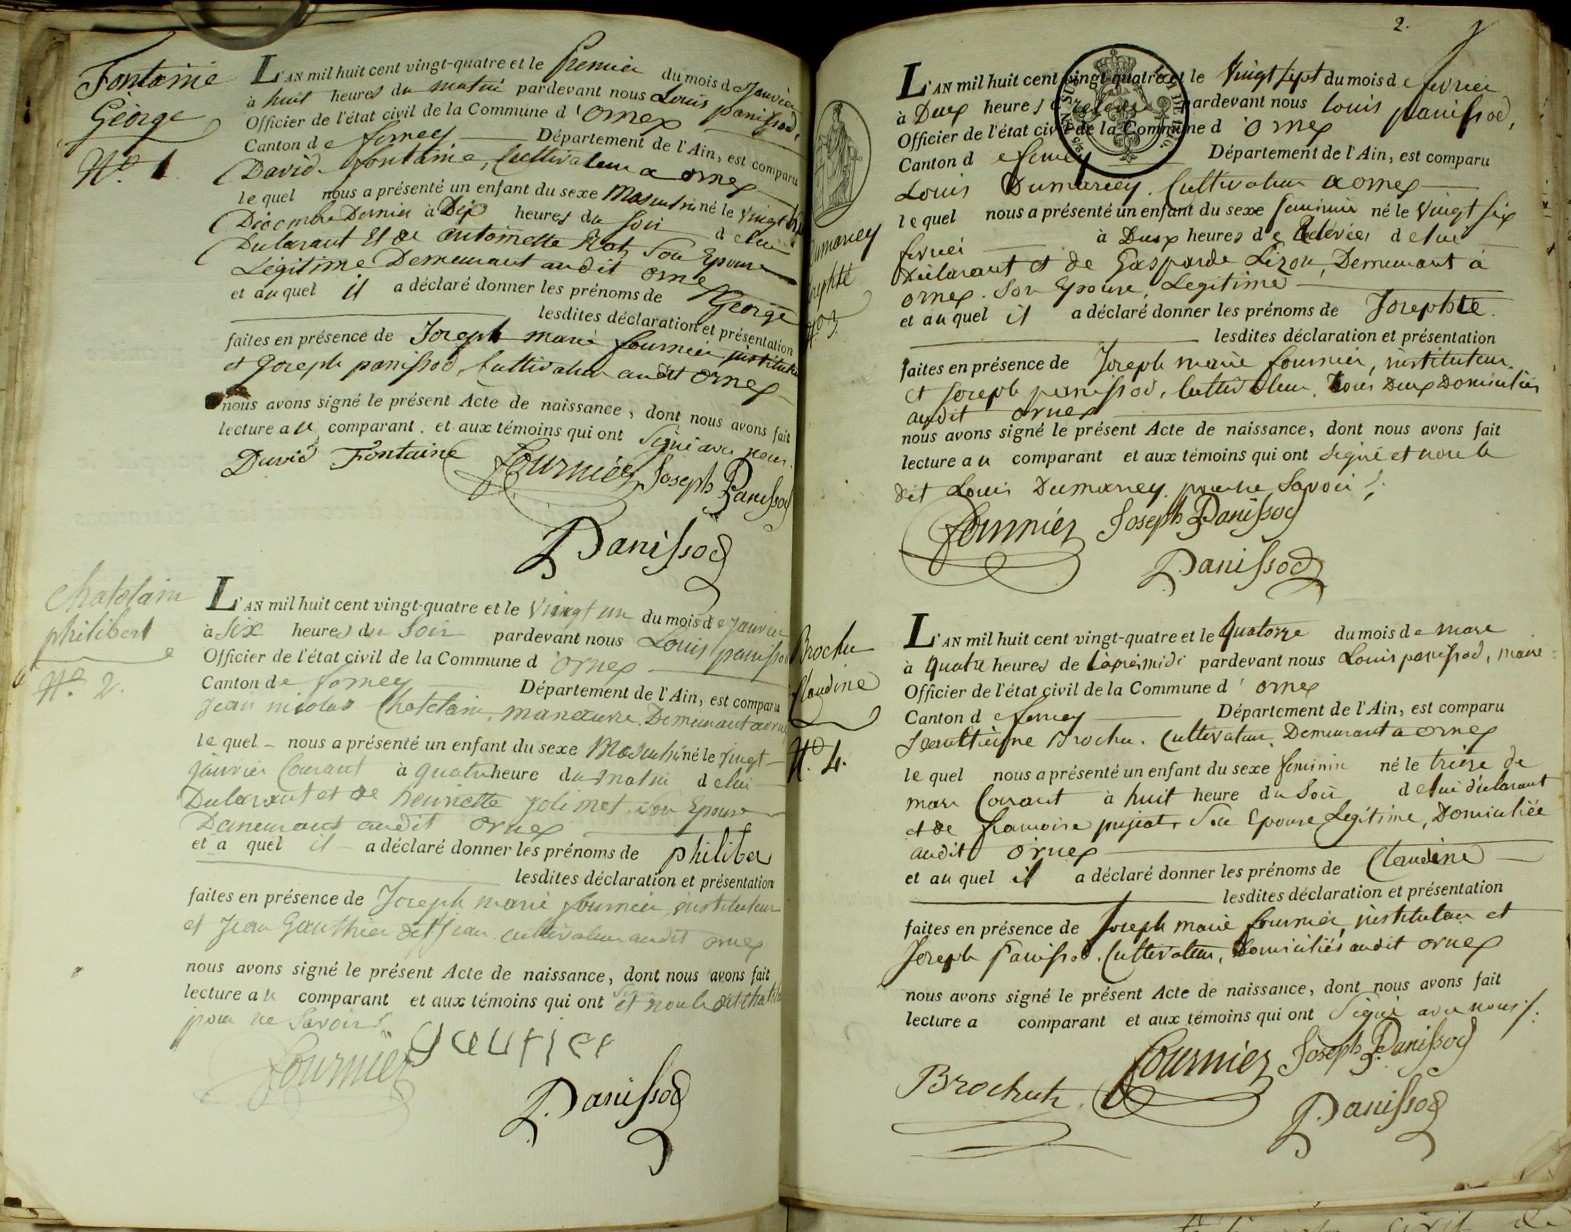 Fontaine
George
N.º 1
L'AN mil huit cent vingt-quatre et le Premier du mois de Janvier
à huit heures du matin pardevant nous Louis panissod,
Officier de l'état civil de la Commune d'ornex
Canton de ferney Département de l'Ain, est comparu
David fontaine, Cultivateur a ornex
le quel nous a présenté un enfant du sexe Masculin né le vingt
Décembre Dernier à Dix heures du Soir de lui
Déclarant Et de antoinette Son Epouse
Légitime Demeurant audit ornex
et auquel il a déclaré donner les prénoms de George
lesdites déclaration et présentation
faites en présence de Joseph marie fournier instituteur
et Joseph panissod, Cultivateur audit ornex
nous avons signé le présent Acte de naissance, dont nous avons fait
lecture au comparant. et aux témoins qui ont Signé avec nous.
David Fontaine Fournier Joseph Panissod
Panissod
Chatelain
philibert
N.º 2.
L'AN mil huit cent vingt-quatre et le vingt un du mois de janvier
à Six heures du Soir pardevant nous Louis panissod
Officier de l'état civil de la Commune d'ornex
Canton de ferney Département de l'Ain, est comparu
jean nicolas Chatelain, manœuvre. Demeurant a ornex
le quel nous a présenté un enfant du sexe Masculin né le vingt
janvier Courant à quatre heure du matin de lui
Déclarant et de henriette jolimet. Son Epouse
Demeurant audit ornex
et a quel il a déclaré donner les prénoms de philiber
lesdites déclaration et présentation
faites en présence de Joseph marie fournier instituteur
et Jean Gauthier dit Jean cultivateur audit ornex
nous avons signé le présent Acte de naissance, dont nous avons fait
lecture au comparant et aux témoins qui ont et non le dit
pour ne Savoir
Fournier
Panissod
2.
Dumarcey
Josephte
N.º 3.
L'AN mil huit cent vingt-quatre et le Vingt sept du mois de fevrier
à Deux heures pardevant nous Louis panissod,
Officier de l'état civil de la Commune d'ornex
Canton de ferney Département de l'Ain, est comparu
Louis Dumarcey. Cultivateur a ornex
le quel nous a présenté un enfant du sexe feminin né le vingt six
fevrier à Deux heures de de lui
Déclarant et de Gasparde Lizon, Demeurant à
ornex. Son Epouse Légitime
et auquel il a déclaré donner les prénoms de Josephte.
lesdites déclaration et présentation
faites en présence de Joseph marie fournier, instituteur.
et Joseph panissod, Cultivateur. Tous Deux Domiciliés
audit ornex
nous avons signé le présent Acte de naissance, dont nous avons fait
lecture au comparant et aux témoins qui ont Signé et non le
dit Louis Dumarcey. pour ne Savoir
Fournier Joseph Panissod
Panissod
Brochu
Claudine
N.º 4.
L'AN mil huit cent vingt-quatre et le Quatorze du mois de mars
à quatre heures de l'après midi pardevant nous Louis panissod, maire
Officier de l'état civil de la Commune d'ornex
Canton de ferney Département de l'Ain, est comparu
Brochu. Cultivateur, Demeurant a ornex
le quel nous a présenté un enfant du sexe feminin né le treize de
mars Courant à huit heure du Soir de lui déclarant
et de francoise pujeat, Son Epouse Legitime, Domiciliée
audit ornex
et auquel il a déclaré donner les prénoms de Claudine
lesdites déclaration et présentation
faites en présence de Joseph marie fournier, instituteur et
Joseph Panissod. Cultivateur, Domiciliés audit ornex
nous avons signé le présent Acte de naissance, dont nous avons fait
lecture a comparant et aux témoins qui ont Signé avec nous
Brochut Fournier Joseph Panissod
Panissod